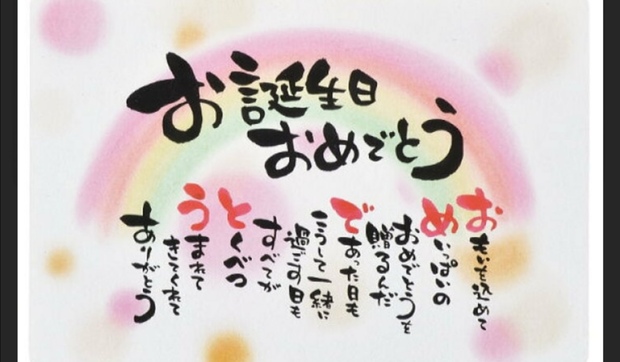 お誕生日
おめでとう
おもいを込めて
めいっぱいの
おめでとうを
贈るんだ
であった日も
こうして一緒に
過ごす日も
すべてが
とくべつ
うまれて
きてくれて
ありがとう